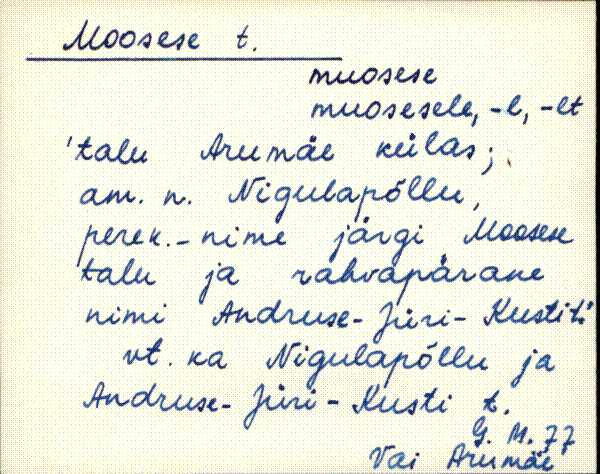 Moosese t.
muosese
muosesele, -l, -lt
'talu Arumäe külas;
am. n. Nigulapõllu,
perek.-nime järgi Moosese
talu ja rahvapärane
nimi Andruse-Jüri-Kusti t.'
vt. ka Nigulapõllu ja
Andruse-Jüri-Kusti t.
G. M. 77
Vai Arumäe